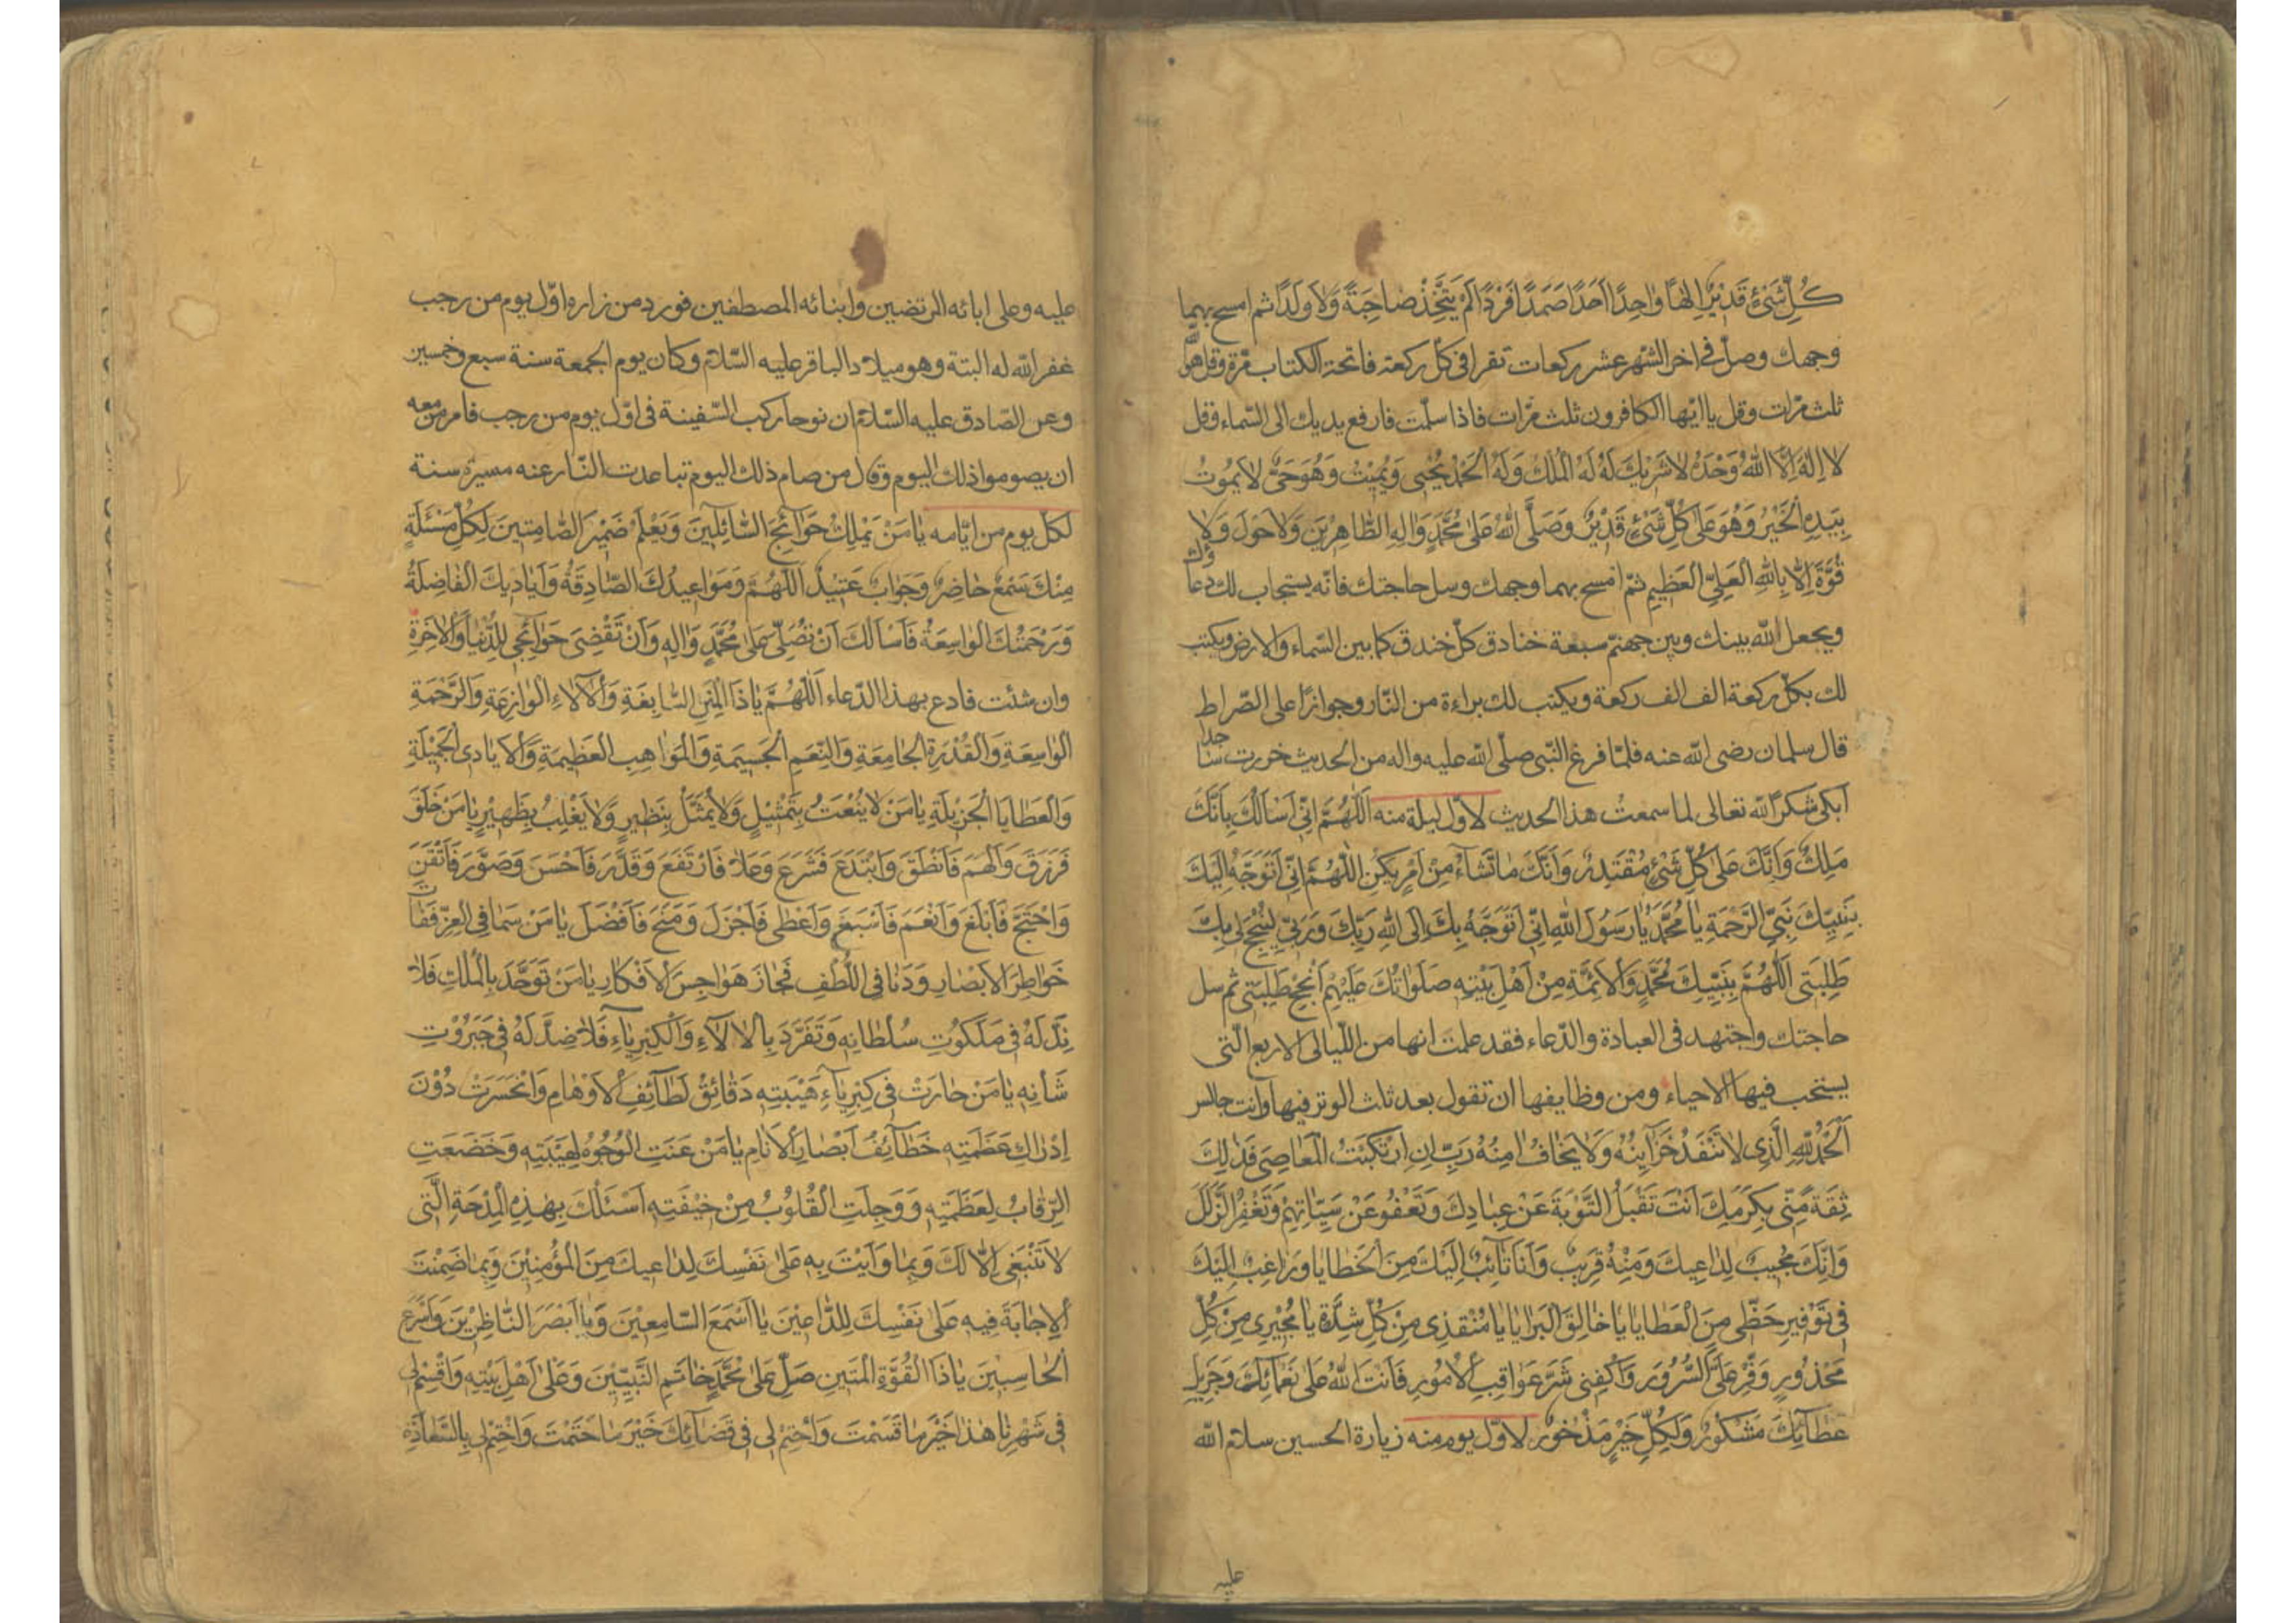 كُلِّ شَيْءٍ قَدِيْرٌ اِلٰهًا وٰاحِدًا اَحَدًا صَمَدًا فَرْدًا لَمْ يَتَّخِذْ صٰاحِبَةً وَلٰا وَلَدًا ثم امسح بهما
وجهك وصل في اخر الشهر عشر ركعات تقرا في كل ركعة فاتحة الكتاب مرّة وقل هو الله
ثلث مرّات وقل يا ايّها الكافرون ثلث مرّات فاذا سلّمت فارفع يديك الى السّماء وقل
لٰا اِلٰهَ اِلَّا اللّٰهُ وَحْدَهُ لٰا شَرِيْكَ لَهُ لَهُ الْمُلْكُ وَلَهُ الْحَمْدُ يُحْيِى وَيُمِيْتُ وَهُوَ حَىٌّ لٰا يَمُوتُ
بِيَدِهِ الْخَيْرُ وَهُوَ عَلىٰ كُلِّ شَيْءٍ قَدِيْرٌ وَصَلَّى اللّٰهُ عَلىٰ مُحَمَّدٍ وَالِهِ الطّٰاهِرِيْنَ وَلٰا حَوْلَ وَلٰا
قُوَّةَ اِلّٰا بِاللّٰهِ الْعَلِيِّ الْعَظِيمِ ثمّ امسح بهما وجهك وسل حاجتك فانّه يستجاب لك دعاؤك
ويجعل الله بينك وبين جهنّم سبعة خنادق كلّ خندق كما بين السّماء والارض ويكتب
لك بكلّ ركعة الف الف ركعة ويكتب لك براءة من النّار وجوازًا على الصّراط
قال سلمان رضى الله عنه فلمّا فرغ النّبى صلّى الله عليه واله من الحديث خررت ساجدا
ابكى شكرًا لله تعالى لما سمعتُ هذا الحديث لاوّل ليلة منه اَللّٰهُمَّ اِنّىِ اَسْاَلُكَ بِاَنَّكَ
مَلِكٌ وَاَنَّكَ عَلىٰ كُلِّ شَيْءٍ مُقْتَدِرٌ وَاَنَّكَ مٰا تَشٰاءُ مِنْ اَمْرٍ يَكُنْ اَللّٰهُمَّ اِنّىِ اَتَوَجَّهُ اِلَيْكَ
بِنَبِيِّكَ نَبِيِّ الرَّحْمَةِ يٰا مُحَمَّدُ يٰا رَسُولَ اللّٰهِ اِنّىِ اَتَوَجَّهُ بِكَ اِلَى اللّٰهِ رَبِّكَ وَرَبِّى لِيُنْجِحَ لِى بِكَ
طَلِبَتِى اَللّٰهُمَّ بِنَبِيِّكَ مُحَمَّدٍ وَالْاَئِمَّةِ مِنْ اَهْلِ بَيْتِهِ صَلَوٰاتُكَ عَلَيْهِمْ اَنْجِحْ طَلِبَتِى ثم سل
حاجتك واجتهد فى العبادة والدّعاء فقد علمت انها من اللّيالى الاربع الّتى
يستحب فيها الاحياء ومن وظايفها ان تقول بعد ثلث الوتر فيها وانت جالس
اَلْحَمْدُ لِلّٰهِ الَّذِى لٰا تَنْفَدُ خَزٰائِنُهُ وَلٰا يَخٰافُ اٰمِنُهُ رَبِّ اِنِ ارْتَكَبْتُ الْمَعٰاصِىَ فَذٰلِكَ
ثِقَةً مِنّىِ بِكَرَمِكَ اَنْتَ تَقْبَلُ التَّوْبَةَ عَنْ عِبٰادِكَ وَتَعْفُو عَنْ سَيِّئٰاتِهِمْ وَتَغْفِرُ الزَّلَلَ
وَاِنَّكَ مُجِيبٌ لِدٰاعِيكَ وَمِنْهُ قَرِيبٌ وَاَنَا تٰائِبٌ اِلَيْكَ مِنَ الْخَطٰايٰا وَرٰاغِبٌ اِلَيْكَ
فِى تَوْفِيرِ حَظّىِ مِنَ الْعَطٰايٰا يٰا خٰالِقَ الْبَرٰايٰا يٰا مُنْقِذِى مِنْ كُلِّ شِدَّةٍ يٰا مُجِيْرِى مِنْ كُلِّ
مَحْذُورٍ وَفِّرْ عَلَىَّ السُّرُورَ وَاكْفِنِى شَرَّ عَوٰاقِبِ الْاُمُورِ فَاَنْتَ اللّٰهُ عَلىٰ نَعْمٰائِكَ وَجَزِيلِ
عَطٰائِكَ مَشْكُورٌ وَلِكُلِّ خَيْرٍ مَذْخُورٌ لاوّل يوم منه زيارة الحسين سلام الله
عليه
عليه وعلى ابائه المرتضين وابنائه المصطفين فورد من زاره اوّل يوم من رجب
غفر الله له البتة وهو ميلاد الباقر عليه السّلام وكان يوم الجمعة سنة سبع وخمسين
وعن الصّادق عليه السّلام ان نوحا ركب السّفينة فى اوّل يوم من رجب فامر من معه
ان يصوموا ذلك اليوم وقال من صام ذلك اليوم تباعدت النّار عنه مسيرة سنة
لكلّ يوم من ايّامه يٰا مَنْ يَمْلِكُ حَوٰائِجَ السّٰائِلِينَ وَيَعْلَمُ ضَمِيْرَ الصّٰامِتِينَ لِكُلِّ مَسْئَلَةٍ
مِنْكَ سَمْعٌ حٰاضِرٌ وَجَوٰابٌ عَتِيْدٌ اَللّٰهُمَّ وَمَوٰاعِيدُكَ الصّٰادِقَةُ وَاَيٰادِيكَ الْفٰاضِلَةُ
وَرَحْمَتُكَ الْوٰاسِعَةُ فَاَسْاَلُكَ اَنْ تُصَلِّىَ عَلىٰ مُحَمَّدٍ وَالِهِ وَاَنْ تَقْضِىَ حَوٰائِجِى لِلدُّنْيٰا وَالْاٰخِرَةِ
وان شئت فادع بهذا الدّعاء اَللّٰهُمَّ يٰا ذَا الْمِنَنِ السّٰابِغَةِ وَالْاٰلٰاءِ الْوٰازِعَةِ وَالرَّحْمَةِ
الْوٰاسِعَةِ وَالْقُدْرَةِ الْجٰامِعَةِ وَالنِّعَمِ الْجَسِيمَةِ وَالْمَوٰاهِبِ الْعَظِيمَةِ وَالْاَيٰادِى الْجَمِيْلَةِ
وَالْعَطٰايَا الْجَزِيْلَةِ يٰا مَنْ لٰا يُنْعَتُ بِتَمْثِيْلٍ وَلٰا يُمَثَّلُ بِنَظِيرٍ وَلٰا يُغْلَبُ بِظَهِيْرٍ يٰا مَنْ خَلَقَ
فَرَزَقَ وَاَلْهَمَ فَاَنْطَقَ وَابْتَدَعَ فَشَرَعَ وَعَلٰا فَارْتَفَعَ وَقَدَّرَ فَاَحْسَنَ وَصَوَّرَ فَاَتْقَنَ
وَاحْتَجَّ فَاَبْلَغَ وَاَنْعَمَ فَاَسْبَغَ وَاَعْطىٰ فَاَجْزَلَ وَمَنَحَ فَاَفْضَلَ يٰا مَنْ سَمٰا فِى الْعِزِّ فَفٰاتَ
خَوٰاطِرَ الْاَبْصٰارِ وَدَنٰا فِى اللُّطْفِ فَجٰازَ هَوٰاجِسَ الْاَفْكٰارِ يٰا مَنْ تَوَحَّدَ بِالْمُلْكِ فَلٰا
نِدَّ لَهُ فِى مَلَكُوتِ سُلْطٰانِهِ وَتَفَرَّدَ بِالْاٰلٰاءِ وَالْكِبْرِيٰاءِ فَلٰا ضِدَّ لَهُ فِى جَبَرُوْتِ
شَأْنِهِ يٰا مَنْ حٰارَتْ فِى كِبْرِيٰاءِ هَيْبَتِهِ دَقٰائِقُ لَطٰائِفِ الْاَوْهٰامِ وَانْحَسَرَتْ دُوْنَ
اِدْرٰاكِ عَظَمَتِهِ خَطٰائِفُ اَبْصٰارِ الْاَنٰامِ يٰا مَنْ عَنَتِ الْوُجُوهُ لِهَيْبَتِهِ وَخَضَعَتِ
الرِّقٰابُ لِعَظَمَتِهِ وَوَجِلَتِ الْقُلُوبُ مِنْ خِيْفَتِهِ اَسْئَلُكَ بِهٰذِهِ الْمِدْحَةِ الَّتِى
لٰا تَنْبَغِى اِلّٰا لَكَ وَبِمٰا وَاَيْتَ بِهِ عَلىٰ نَفْسِكَ لِدٰاعِيكَ مِنَ الْمُؤْمِنِيْنَ وَبِمٰا ضَمِنْتَ
الْاِجٰابَةَ فِيهِ عَلىٰ نَفْسِكَ لِلدّٰاعِيْنَ يٰا اَسْمَعَ السّٰامِعِيْنَ وَيٰا اَبْصَرَ النّٰاظِرِيْنَ وَاَسْرَعَ
الْحٰاسِبِيْنَ يٰا ذَا الْقُوَّةِ الْمَتِينِ صَلِّ عَلىٰ مُحَمَّدٍ خٰاتَمِ النَّبِيِّيْنَ وَعَلىٰ اَهْلِ بَيْتِهِ وَاقْسِمْ لِى
فِى شَهْرِنٰا هٰذٰا خَيْرَ مٰا قَسَمْتَ وَاحْتِمْ لِى فِى قَضٰائِكَ خَيْرَ مٰا حَتَمْتَ وَاخْتِمْ لِى بِالسَّعٰادَةِ